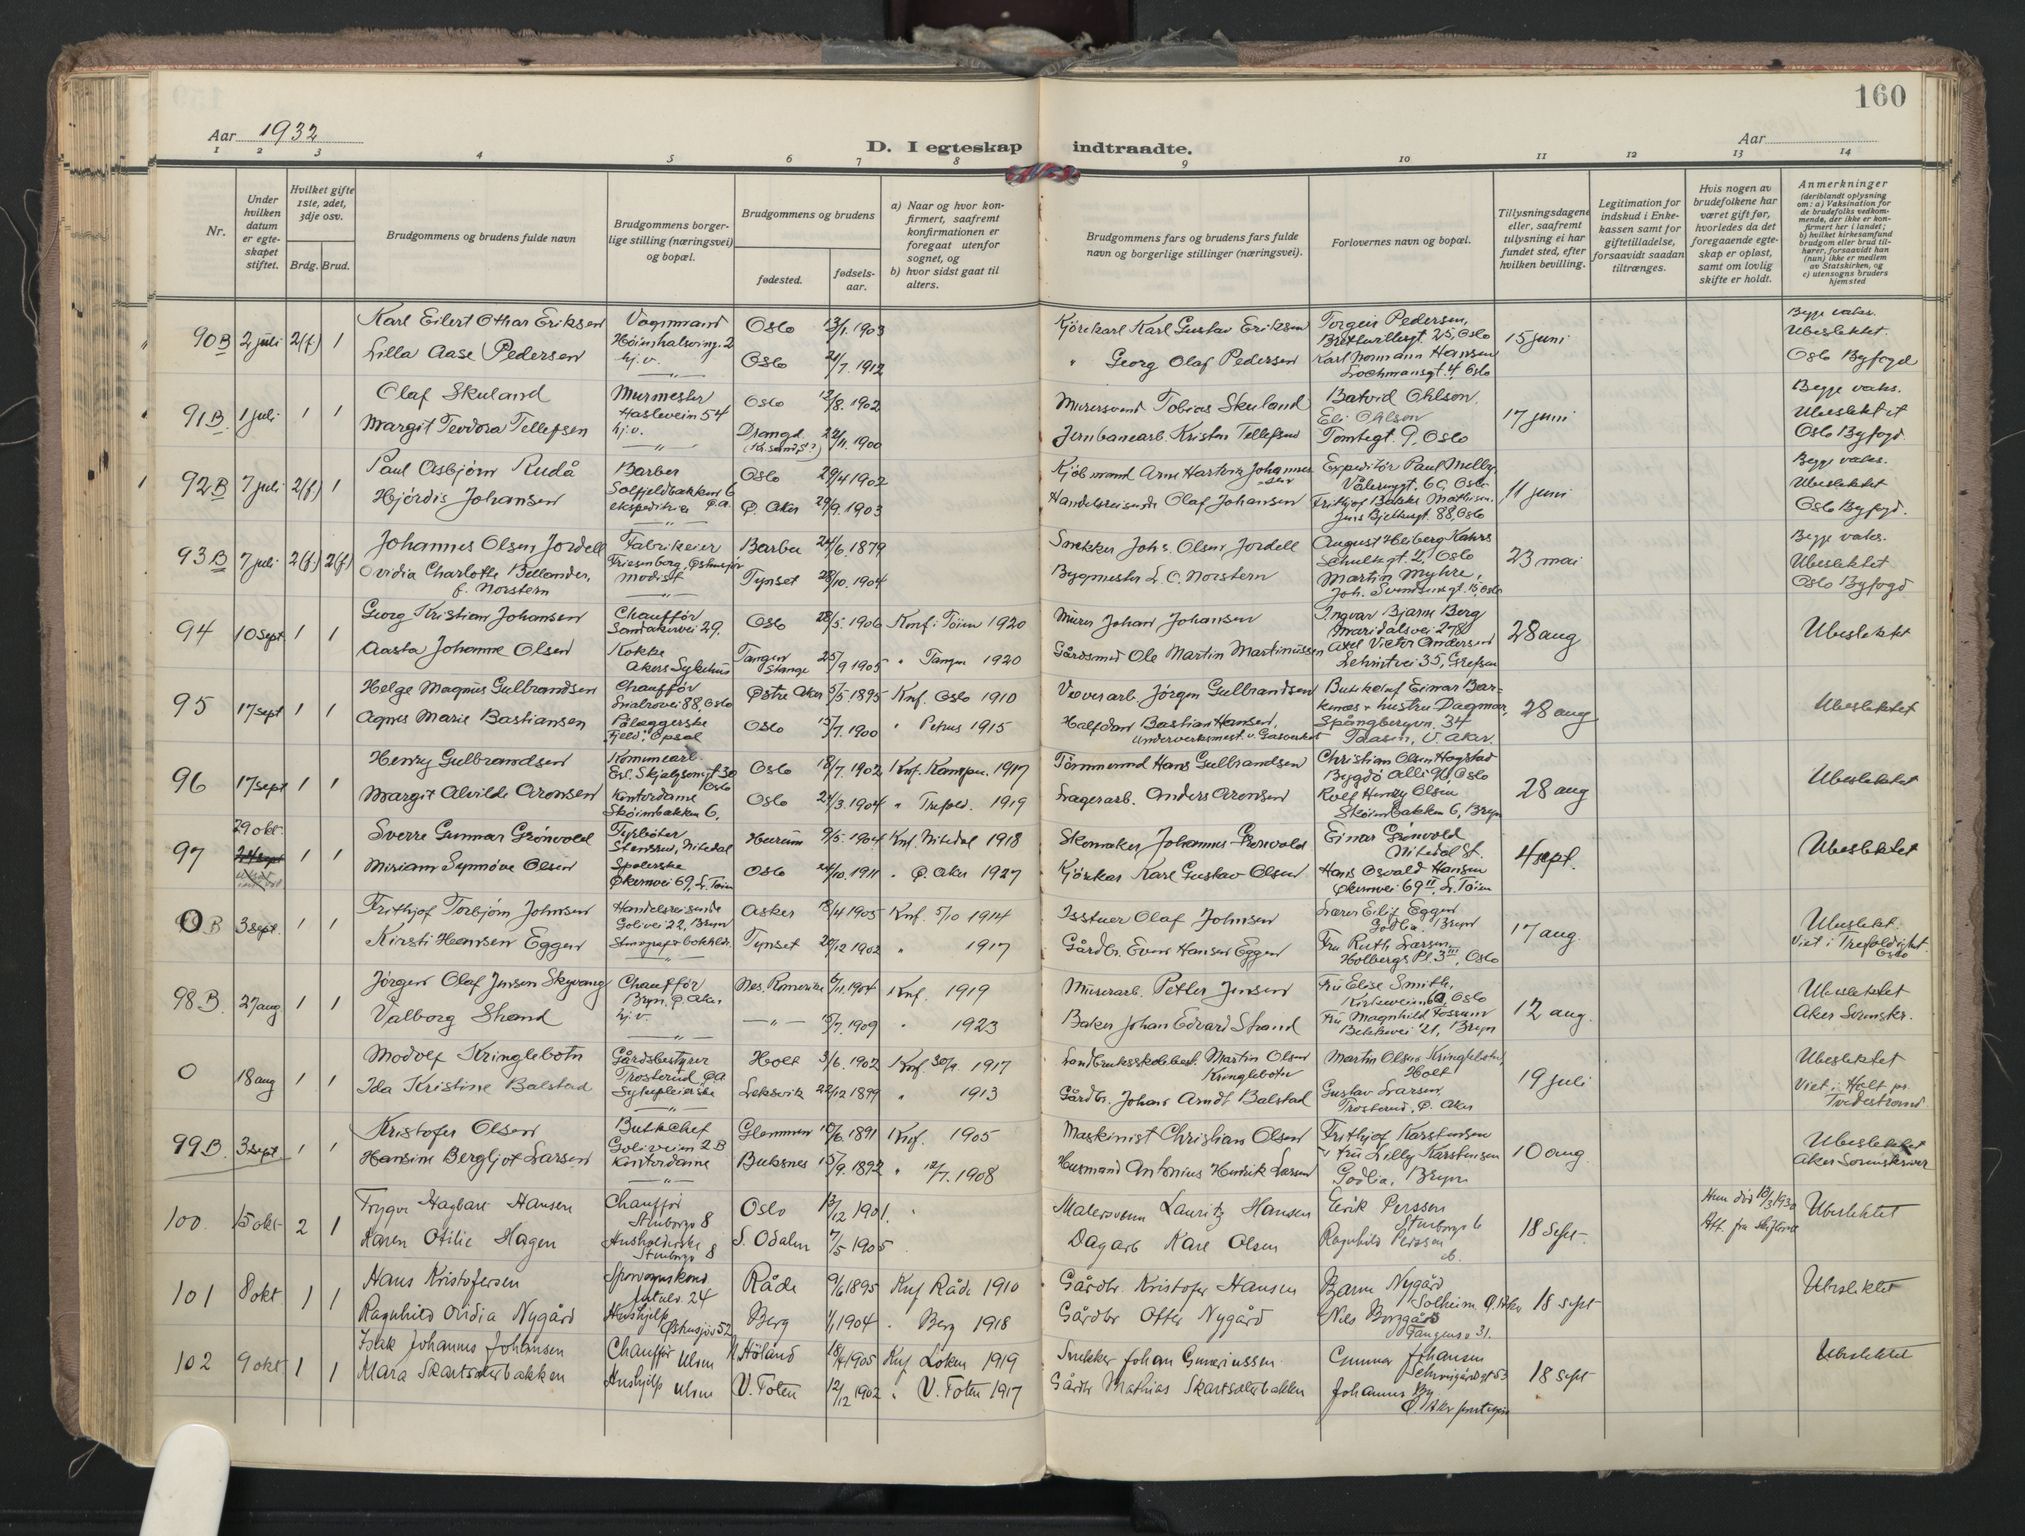 160
Aar 1932
D. I egteskap indtraadte.
Aar
1 2 3 4 5 6 7 8 9 10 11 12 13 14
Nr.
Under hvilken datum er egteskapet stiftet.
Hvilket gifte 1ste, 2det, 3dje osv.
Brdg. Brud.
Brudgommens og brudens fulde navn
Brudgommens borgerlige stilling (næringsvei) og bopæl.
Brudgommens og brudens
fødested.
fødselsaar.
a) Naar og hvor konfirmert, saafremt konfirmationen er foregaat utenfor sognet, og
b) hvor sidst gaat til alters.
Brudgommens fars og brudens fars fulde navn og borgerlige stillinger (næringsvei).
Forlovernes navn og bopæl.
Tillysningsdagene eller, saafremt tillysning ei har fundet sted, efter hvilken bevilling.
Legitimation for indskud i Enkekassen samt for giftetilladelse, forsaavidt saadan tiltrænges.
Hvis nogen av brudefolkene har været gift før, hvorledes da det foregaaende egteskap er opløst, samt om lovlig skifte er holdt.
Anmerkninger
(deriblandt oplysning om: a) Vaksination for de brudefolks vedkommende, der ikke er konfirmert her i landet; b) hvilket kirkesamfund brudgom eller brud tilhører, forsaavidt han (hun) ikke er medlem av Statskirken, og c) utensogns bruders hjemsted
90B 2 juli 2(f) 1 Karl Eilert Othar Eriksen Vognmand Oslo 13/1. 1903 Kjørekarl Karl Gustav Eriksen Torgeir Pedersen, 15 juni Begge vaks.
Lilla Aase Pedersen hj.v. Oslo 24/7. 1912 " Georg Olaf Pedersen Karl Normann Hansen Ubeslektet.
Oslo Byfogd
91B 1 juli 1 1 Olaf Skuland Murmester Oslo 12/8. 1902 Murersvend Tobias Skuland Batvid Ohlson, 17 juni Begge vaks.
Haslevein 54 Eli Ohlson Ubeslektet
Margit Teodora Tellefsen hj.v. Drangd. 22/11. 1900 Jernbanearb. Kristen Tellefsen Tomtegt. 9, Oslo Oslo Byfogd.
92B 7 juli 2(f) 1 Paul Asbjørn Rudå Barber Oslo 29/4 1902 Kjøbmand Arne Hartvig Johannessen Expeditør Paul Melby 11 juni Begge vaks.
Hjørdis Johansen ekspeditrise Ø.A. Ø. Aker 29/9. 1903 Handelsreisende Olaf Johansen Ubeslektet
Jens Bjelkesgt. 88, Oslo Oslo Byfogd.
93B 7 juli 2(f) 2(f) Johannes Olsen Jordell Fabrikeier Barbu 24/6. 1879 Snekker Johs. Olsen Jordell August Heiberg Kahrs 23 mai Begge vaks.
Schultzgt. 2, Oslo
Ovidia Charlotte Bellander, Modist Tynset 28/10. 1904 Bygmester L. C. Norstern Martin Myhre, Ubeslektet
f. Norstern Oslo Byfogd
94 10 sept 1 1 Georg Kristian Johansen Chauffør Oslo 28/5. 1906 Konf. i Tøien 1920 Murer Johan Johansen Ingvar Bjarne Berg 28 aug Ubeslektet
Sandakervei 29. Maridalsvei 278
Aasta Johanne Olsen Kokke Tangen 25/9 1905 " Tangen 1920 Gårdsmed Ole Martin Martinussen Axel Victor Andersen
Akers Sykehus Stange 35, Grefsen
95 17 sept 1 1 Helge Magnus Gulbrandsen Chauffør Østre Aker 5/5. 1895 Knf. Oslo 1910 Væverarb. Jørgen Gulbrandsen 28 aug Ubeslektet
88, Oslo hustru Dagmar,
Agnes Marie Bastiansen Pålæggerske Oslo 15/7. 1900 " Petrus 1915 Halfdan Bastian Hansen, Spångbergvn. 34
"Fjeld", Opsal Taasen, V. Aker.
96 17 sept 1 1 Henry Gulbrandsen Oslo 18/7. 1902 Knf. Kampen. 1917 Tømmermd Hans Gulbrandsen Christian Olsen Hogstad 28 aug Ubeslektet
Bygdø Allé 91, Oslo
Margit Alvilde Aronsen Kontordame Oslo 24/3. 1904 " Trefold. 1919 Lagerarb. Anders Aronsen Rolf Henry Olsen
Skøienbakken 6, Skøienbakken 6, Bryn
97 29 okt. 1 1 Sverre Gunnar Grønvold Hurum 9/5. 1904 Knf. Nitedal 1918 Skomaker Johannes Grønvold Einar Grønvold 4 sept. Ubeslektet
Nitedal Nitedal St.
Miriam Synnøve Olsen Spolerske Oslo 24/10. 1911 " Ø. Aker 1927 Kjørekar Karl Gustav Olsen Hans Osvald Hansen
Økernvei 69, L. Tøien Økernvei 69 II, L. Tøien
0 B 3 sept. 1 1 Frithjof Torbjørn Johnsen Handelsreisende Asker 18/4 1905 Knf. 5/10 1914 Olaf Johnsen Lærer Eilif Eggen 17 aug. Ubeslektet.
Golivei 22, Bryn Godlia, Bryn
Kirsti Hansen Eggen Tynset 20/12 1902 " 1917 Gårdbr. Even Hansen Eggen Fru Ruth Larsen Viet i Trefoldighet
Holbergs Pl. 3 III, Oslo Oslo
98 B. 27 aug 1 1 Jørgen Olaf Jensen Skyvang Chauffør Nes. Romerike 6/11. 1904 Knf. 1919 Murerarb. Petter Jensen Fru Elise Smith, 12 aug. Ubeslektet
Bryn, Ø. Aker Oslo
Valborg Strand hj.v. — " — 15/7. 1909 " 1923 Baker Johan Edvard Strand Fru Magnhild Fossum Aker Sorenskr.
Bekkevei 21, Bryn
0 18 aug 1 1 Modolf Kringlebotn Gårdsbestyrer Holt 3/6. 1902 Knf. 30/9. 1917 Martin Olsen Kringlebotn Martin Olsen Kringlebotn, Holt 19 juli Ubeslektet
Trosterud Ø A
Ida Kristine Balstad Sykepleierske Leksvik 22/12 1899 " 1913 Gårdbr. Johan Arndt Balstad Gustav Larsen, Viet i Holt pr.
Trosterud, Ø. Aker Tvedestrand
99 B. 3 sept 1 1 Kristofer Olsen Glemmen 10/6. 1891 Knf. 1905 Maskinist Christian Olsen Frithjof Karstensen 10 aug. Ubeslektet
Golivein 2 B & fru Lilly Karstensen
Hansine Bergljot Larsen Kontordame Buksnes 15/9. 1892 " 12/7. 1908 Husmand Antonius Henrik Larsen Godlia, Bryn Aker Sorenskriver
100. 15 okt. 2 1 Trygve Hagbart Hansen Chauffør Oslo 13/12 1901. " Malersvenn Lauritz Hansen Erik Persson 18 sept. Hun død 13/3 1930 Ubeslektet
Stenborgv 8 Stenborgv 6 Att. fra Skifterett
Karen Otilie Hagen Husholderske S. Odalen 7/5 1905 . Dagarb Karl Olsen Ragnhild Persson
Stenborgv 8 do.
101 8 okt. 1 1 Hans Kristofersen Sporvognskond Råde 9/6 1895 Knf Råde 1910 Gårdbr. Kristofer Hansen Nygård 18 sept. Ubeslektet
24 Solheim Ø. Aker
Ragnhild Ovidia Nygård Hushjelp Berg 1/1 1904 " Berg 1918 Gårdbr Otter Nygård Nils Borggård
Østensjøv 52
102 9 okt 1 1 Isak Johannes Johansen Chauffør Ulven N. Høland 18/4 1905 Knf Løken 1919 Snekker Johan Gunerius sen. Gunnar Johansen 18 sept Ubeslektet
Mara Skartsæterbakken Hushjelp Ulven V. Toten 12/12 1902 " V. Toten 1917 Gårdbr Mathias Skartsæterbakken Johannes By